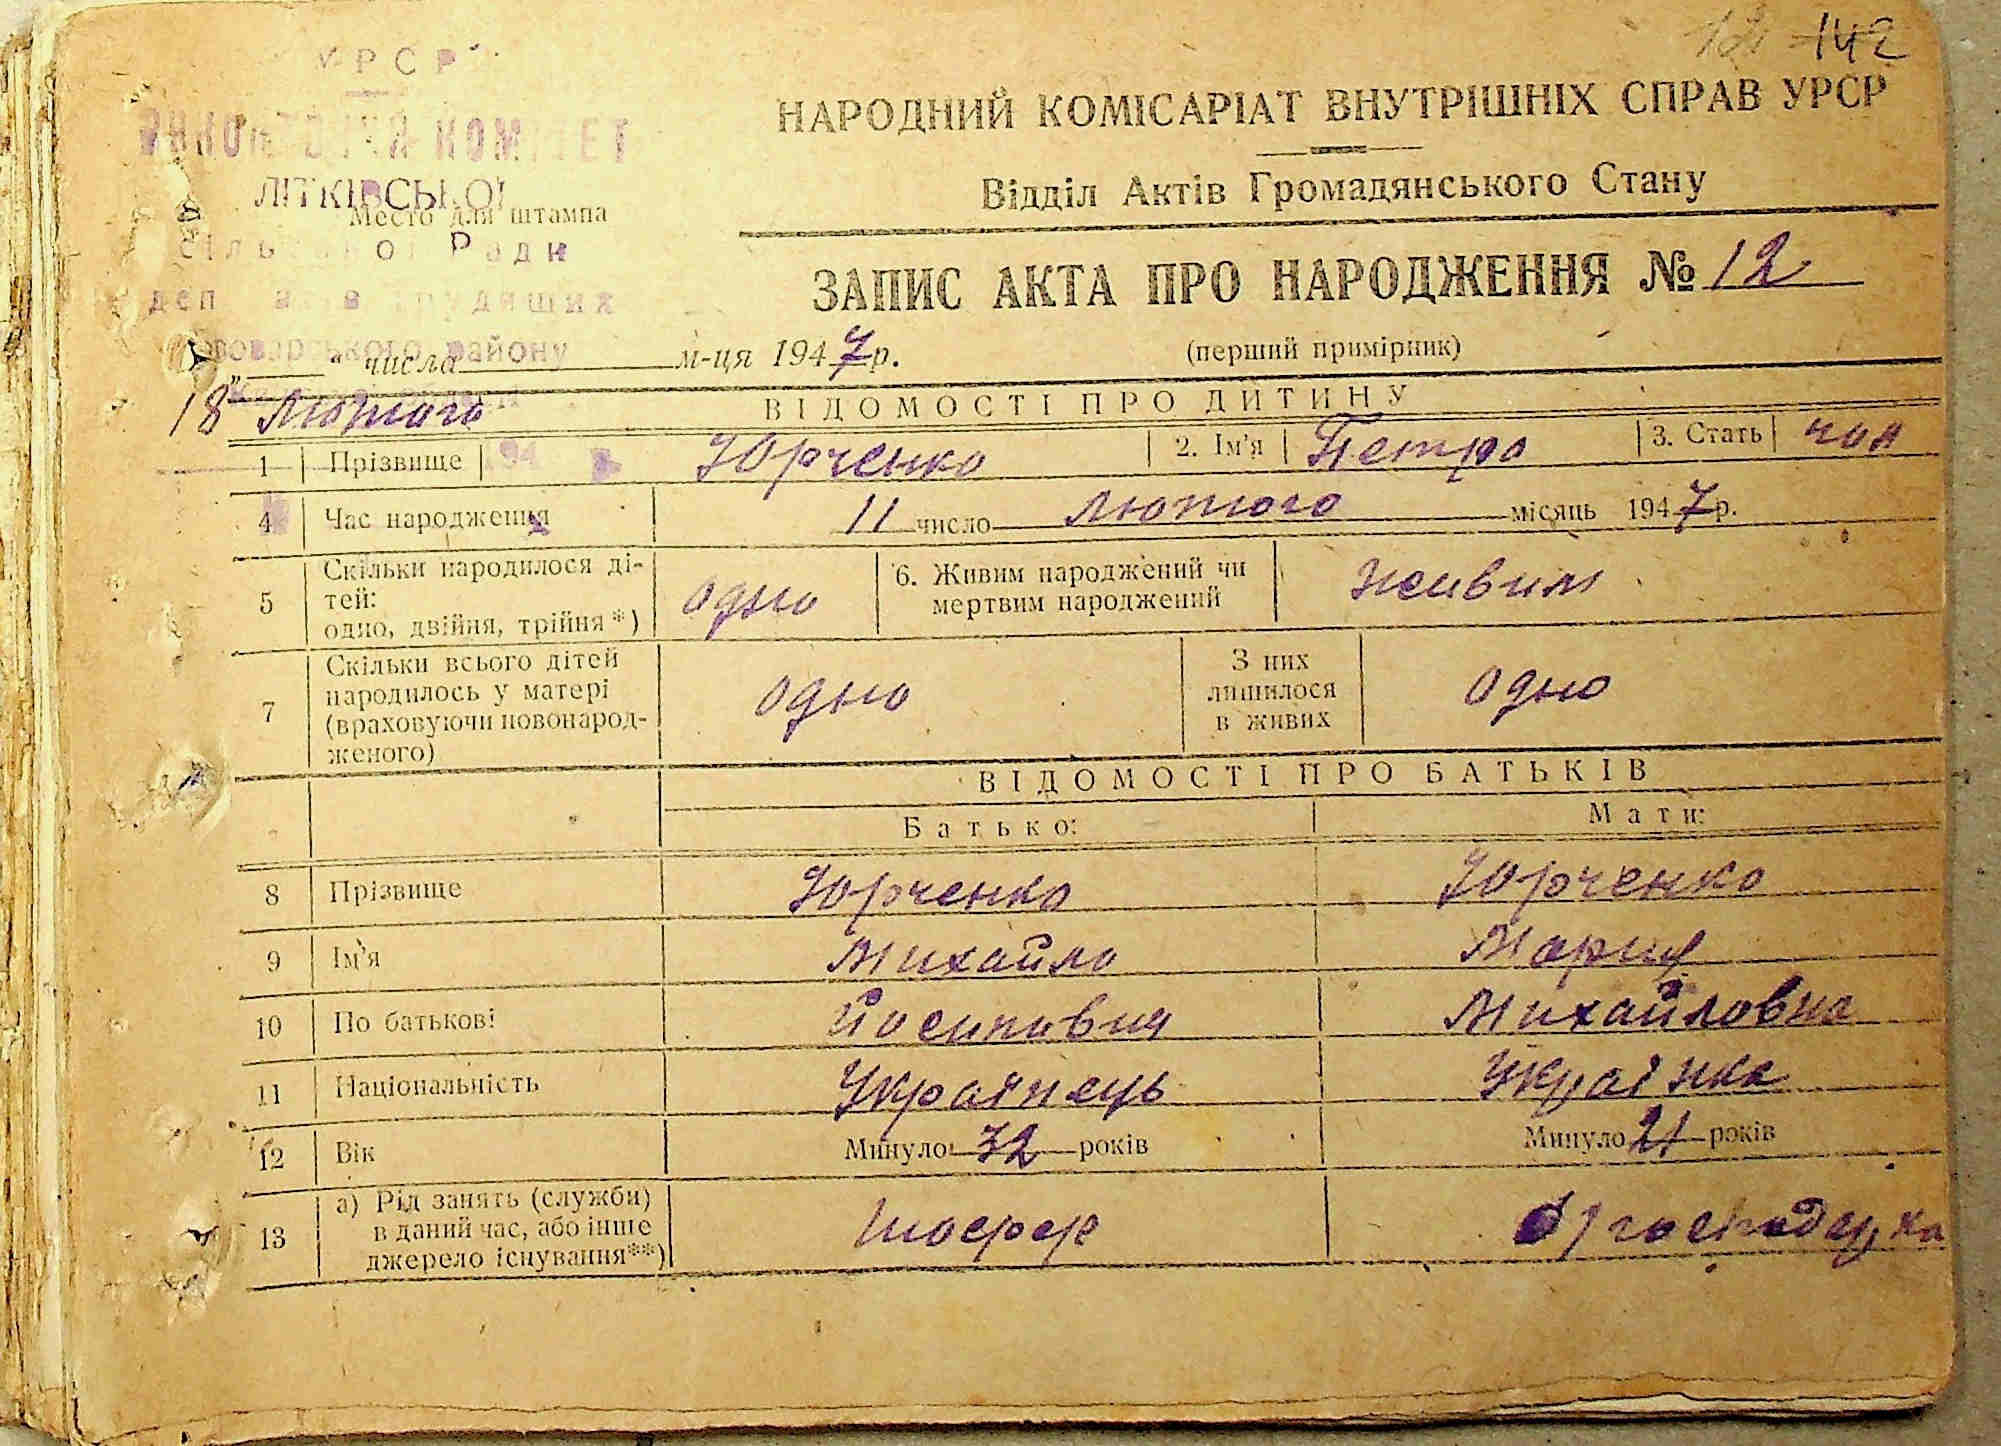 142
УРСР
ВИКОНАВЧИЙ КОМІТЕТ
ЛІТКІВСЬКОЇ
Место для штампа
сільської Ради
депутатів трудящих
Броварського району
НАРОДНИЙ КОМІСАРІАТ ВНУТРІШНІХ СПРАВ УРСР
Відділ Актів Громадянського Стану
ЗАПИС АКТА ПРО НАРОДЖЕННЯ № 12
(перший примірник)
" числа м-ця 1947 р.
18" лютого
ВІДОМОСТІ ПРО ДИТИНУ
1 Прізвище Юрченко 2. Ім'я Петро 3. Стать чол
4 Час народження 11 число лютого місяць 1947 р.
5 Скільки народилося ді-
тей:
одно, двійня, трійня *) одно
6. Живим народжений чи
мертвим народжений живим
7 Скільки всього дітей
народилось у матері
(враховуючи новонарод-
женого) одно
З них
лишилося
в живих одно
ВІДОМОСТІ ПРО БАТЬКІВ
Батько: Мати:
8 Прізвище Юрченко Юрченко
9 Ім'я Михайло Мария
10 По батькові Йосипович Михайловна
11 Національність Українець Українка
12 Вік Минуло 32 років Минуло 21 років
13 а) Рід занять (служби)
в даний час, або інше
джерело існування**) Шофер